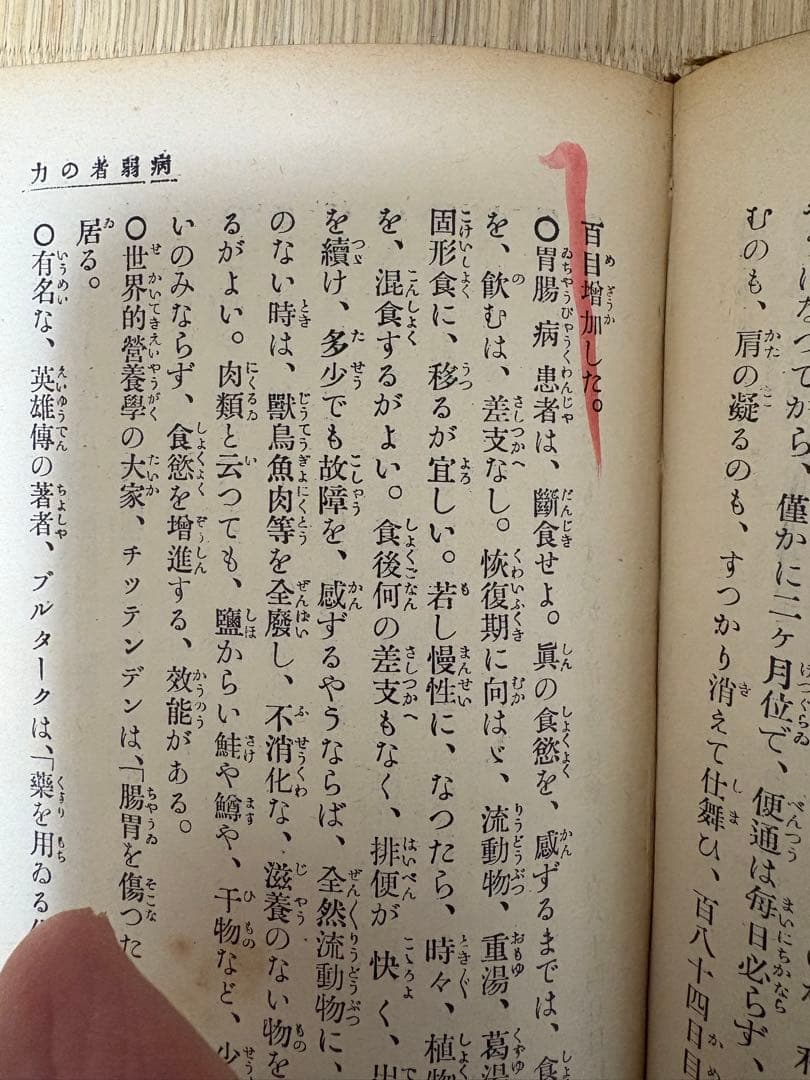 むのも、肩の凝るのも、すつかり消えて仕舞ひ、百八十四日目
なつてから、僅かに二ヶ月位で、便通は毎日必らず、
病弱者の力
百目増加した。
〇胃腸病患者は、斷食せよ。眞の食慾を、感ずるまでは、食
を、飮むは、差支なし。恢復期に向はゞ、流動物、重湯、葛湯
固形食に、移るが宜しい。若し慢性に、なつたら、時々、植物
を、混食するがよい。食後何の差支もなく、排便が快く、出
を續け、多少でも故障を、感ずるやうならば、全然流動物に、
のない時は、獸鳥魚肉等を全廢し、不消化な、滋養のない物を
るがよい。肉類と云つても、鹽からい鮭や鱒や、干物など、少
いのみならず、食慾を增進する、效能がある。
〇世界的營養學の大家、チッテンデンは、「腸胃を傷つた
居る。
〇有名な、英雄傳の著者、ブルタークは、「藥を用ゐる